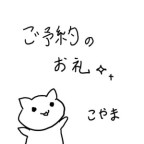 ご予約の
お礼
こやま